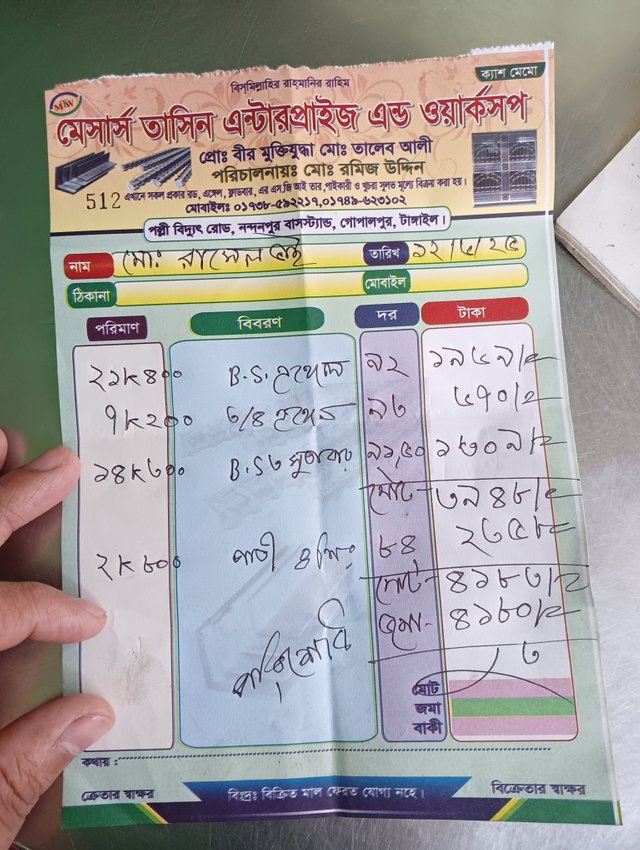 ক্যাশ মেমো
বিসমিল্লাহির রাহমানির রাহিম
MTW
মেসার্স তাসিন এন্টারপ্রাইজ এন্ড ওয়ার্কসপ
প্রোঃ বীর মুক্তিযুদ্ধা মোঃ তালেব আলী
পরিচালনায়ঃ মোঃ রমিজ উদ্দিন
512 এখানে সকল প্রকার রড, এঙ্গেল, ফ্লাটবার, এর এস,জি আই তার,পাইকারী ও খুচরা সুলভ মূল্যে বিক্রয় করা হয়।
মোবাইলঃ ০১৭৩৮-৫৯২২১৭,০১৭৪৯-৬২৩১০২
পল্লী বিদ্যুৎ রোড, নন্দনপুর বাসস্ট্যান্ড, গোপালপুর, টাঙ্গাইল।
নাম মোঃ রাসেল ভাই তারিখ ১২/৬/২৫
ঠিকানা মোবাইল
পরিমাণ বিবরণ দর টাকা
২১K৪০০ B.S. এঙ্গেল ৯২ ১৯৬৯/=
৭K২০০ ৩/৪ এঙ্গেল ৯৩ ৬৭০/=
১৪K৩০০ B.S ৯১/৫০ ১৩০৯/=
মোট- ৩৯৪৮/=
২K৮০০ পাতী ৮৪ ২৩৫/=
মোট- ৪১৮৩/=
জমা- ৪১৮০/=
৩
পরিশোধ
মোট
জমা
বাকী
কথায় :
ক্রেতার স্বাক্ষর বিঃদ্রঃ বিক্রিত মাল ফেরত যোগ্য নহে। বিক্রেতার স্বাক্ষর